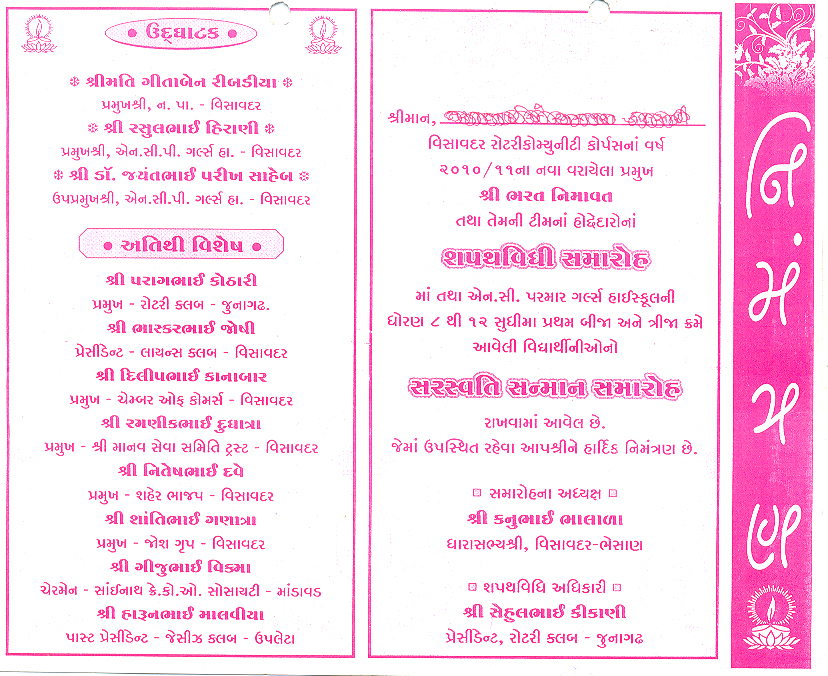 • ઉદ્ઘાટક •
❉ શ્રીમતિ ગીતાબેન રીબડીયા ❉
પ્રમુખશ્રી, ન. પા. - વિસાવદર
❉ શ્રી રસુલભાઈ હિરાણી ❉
પ્રમુખશ્રી, એન.સી.પી. ગર્લ્સ હા. - વિસાવદર
❉ શ્રી ડૉ. જયંતભાઈ પરીખ સાહેબ ❉
ઉપપ્રમુખશ્રી, એન.સી.પી. ગર્લ્સ હા. - વિસાવદર
• અતિથી વિશેષ •
શ્રી પરાગભાઈ કોઠારી
પ્રમુખ - રોટરી કલબ - જુનાગઢ.
શ્રી ભાસ્કરભાઈ જોષી
પ્રેસીડેન્ટ - લાયન્સ કલબ - વિસાવદર
શ્રી દિલીપભાઈ કાનાબાર
પ્રમુખ - ચેમ્બર ઓફ કોમર્સ - વિસાવદર
શ્રી રમણીકભાઈ દુધાત્રા
પ્રમુખ - શ્રી માનવ સેવા સમિતિ ટ્રસ્ટ - વિસાવદર
શ્રી નિતેષભાઈ દવે
પ્રમુખ - શહેર ભાજપ - વિસાવદર
શ્રી શાંતિભાઈ ગણાત્રા
પ્રમુખ - જોશ ગૃપ - વિસાવદર
શ્રી ગીજુભાઈ વિકમા
ચેરમેન - સાંઈનાથ ક્રે.કો.ઓ. સોસાયટી - માંડાવડ
શ્રી હારૂનભાઈ માલવીયા
પાસ્ટ પ્રેસીડેન્ટ - જેસીઝ કલબ - ઉપલેટા
શ્રીમાન,
વિસાવદર રોટરીકોમ્યુનીટી કોર્પસનાં વર્ષ
૨૦૧૦/૧૧ના નવા વરાયેલા પ્રમુખ
શ્રી ભરત નિમાવત
તથા તેમની ટીમનાં હોદ્દેદારોનાં
શપથવિધી સમારોહ
માં તથા એન.સી. પરમાર ગર્લ્સ હાઈસ્કૂલની
ધોરણ ૮ થી ૧૨ સુધીમા પ્રથમ બીજા અને ત્રીજા ક્રમે
આવેલી વિદ્યાર્થીનીઓનો
સરસ્વતિ સન્માન સમારોહ
રાખવામાં આવેલ છે.
જેમાં ઉપસ્થિત રહેવા આપશ્રીને હાર્દિક નિમંત્રણ છે.
સમારોહના અધ્યક્ષ
શ્રી કનુભાઈ ભાલાળા
ધારાસભ્યશ્રી, વિસાવદર-ભેસાણ
શપથવિધિ અધિકારી
શ્રી સેહુલભાઈ ટીકાણી
પ્રેસીડેન્ટ, રોટરી કલબ - જુનાગઢ
નિમંત્રણ